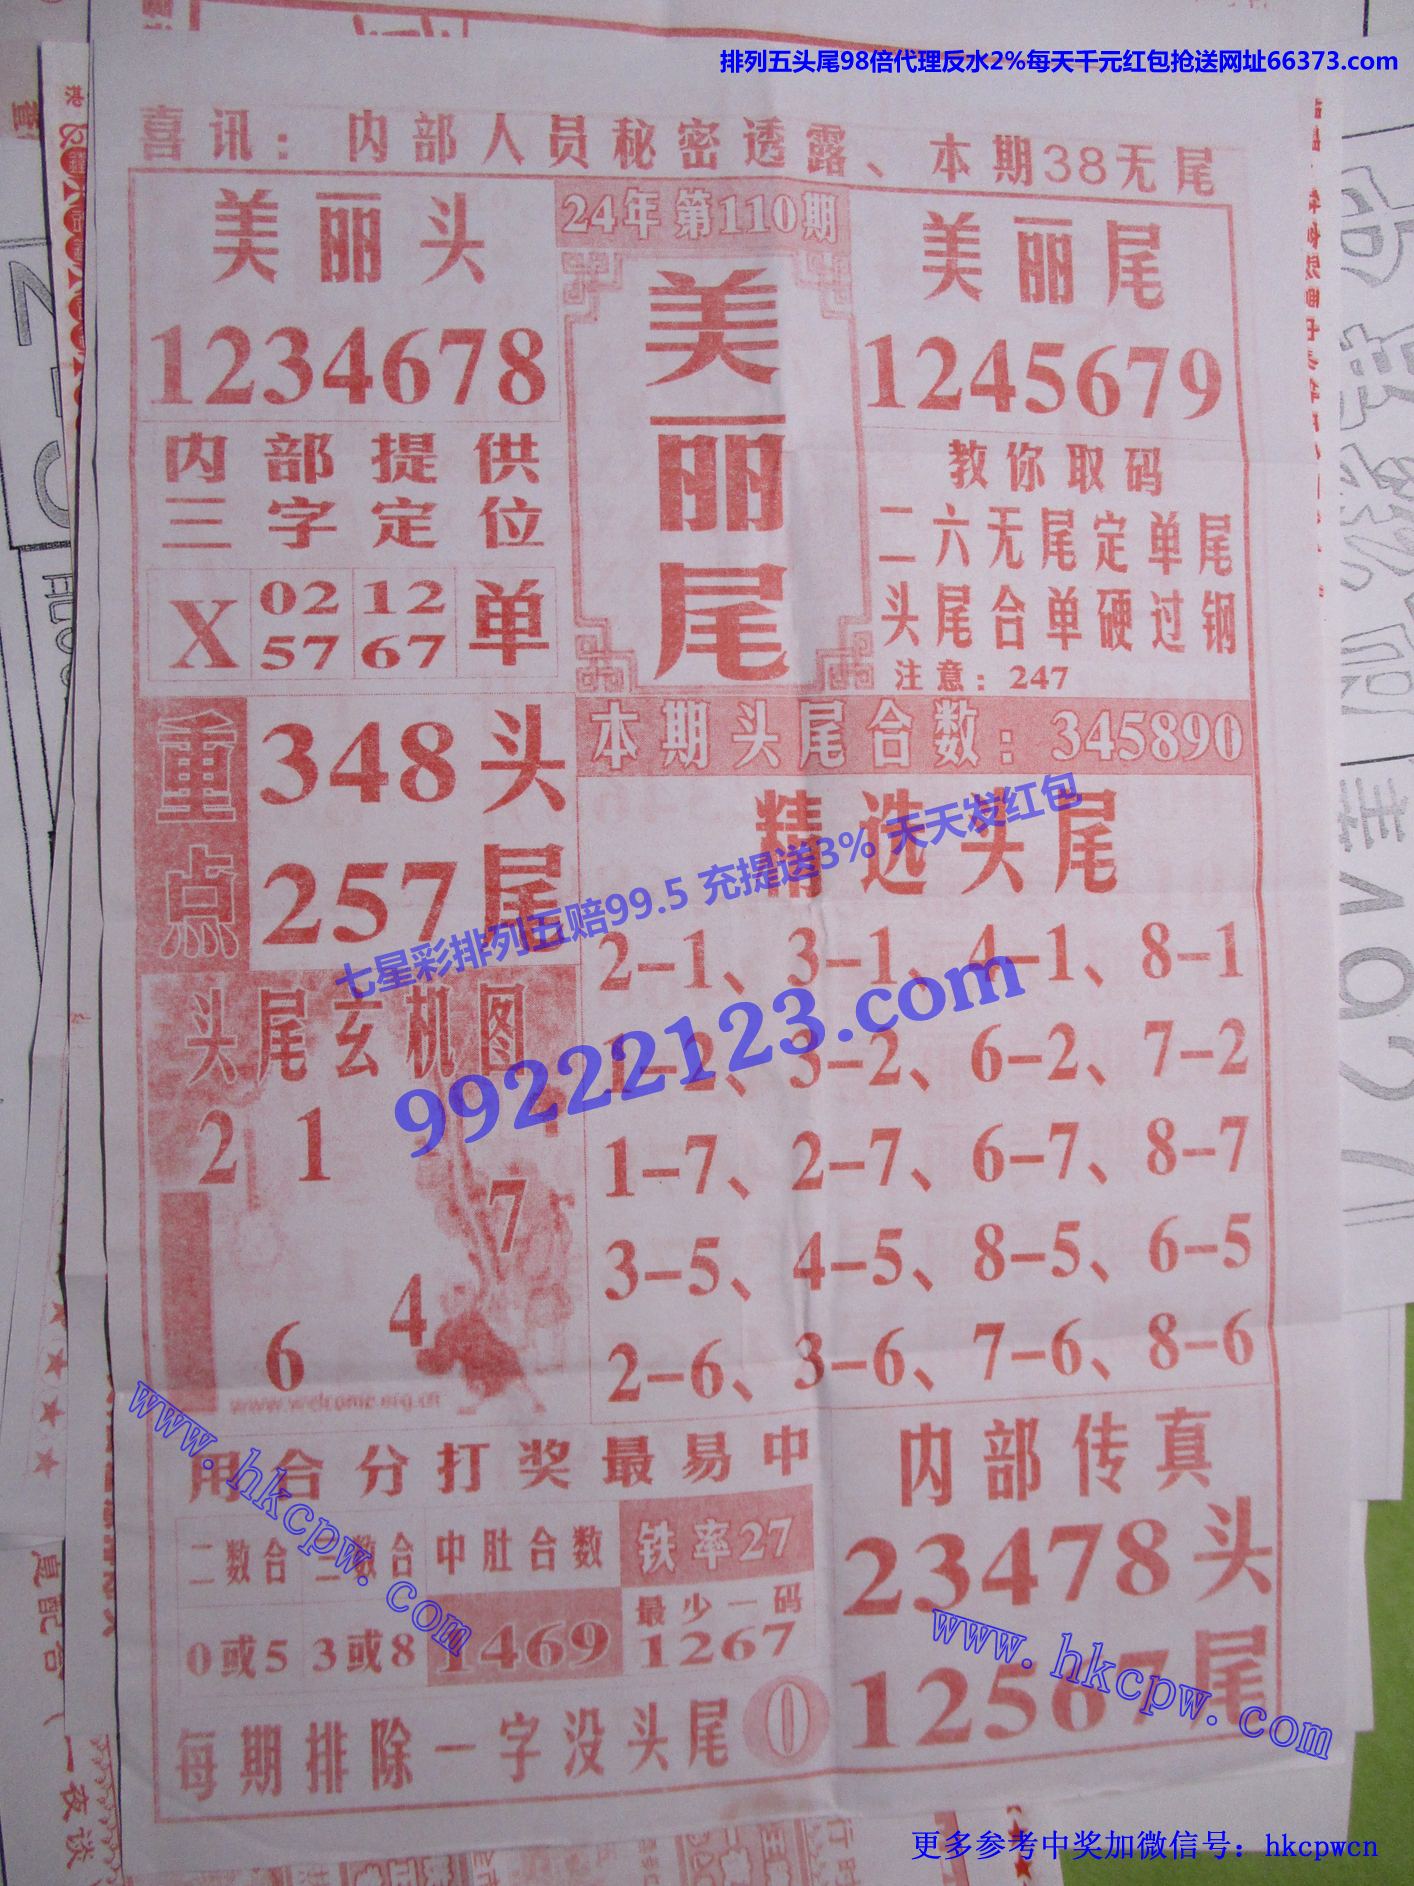 排列五头尾98倍代理反水2%每天千元红包抢送网址66373.com
喜讯：内部人员秘密透露、本期38无尾
美丽头
1234678
24年第110期
美丽尾
美丽尾
1245679
内部提供
三字定位
X 02 12 单
57 67
教你取码
二六无尾定单尾
头尾合单硬过钢
注意：247
重点
348头
257尾
本期头尾合数：345890
精选头尾
2-1、3-1、4-1、8-1
1-2、3-2、6-2、7-2
1-7、2-7、6-7、8-7
3-5、4-5、8-5、6-5
2-6、3-6、7-6、8-6
七星彩排列五赔99.5 充提送3% 天天发红包
99222123.com
头尾玄机图
2 1
7
4
6
www.welcome.org.cn
www.hkcpw.com
用合分打奖最易中
二数合 三数合 中肚合数 铁率27
0或5 3或8 1469 最少一码
1267
每期排除一字没头尾 0
内部传真
23478头
12567尾
www.hkcpw.com
更多参考中奖加微信号：hkcpwcn